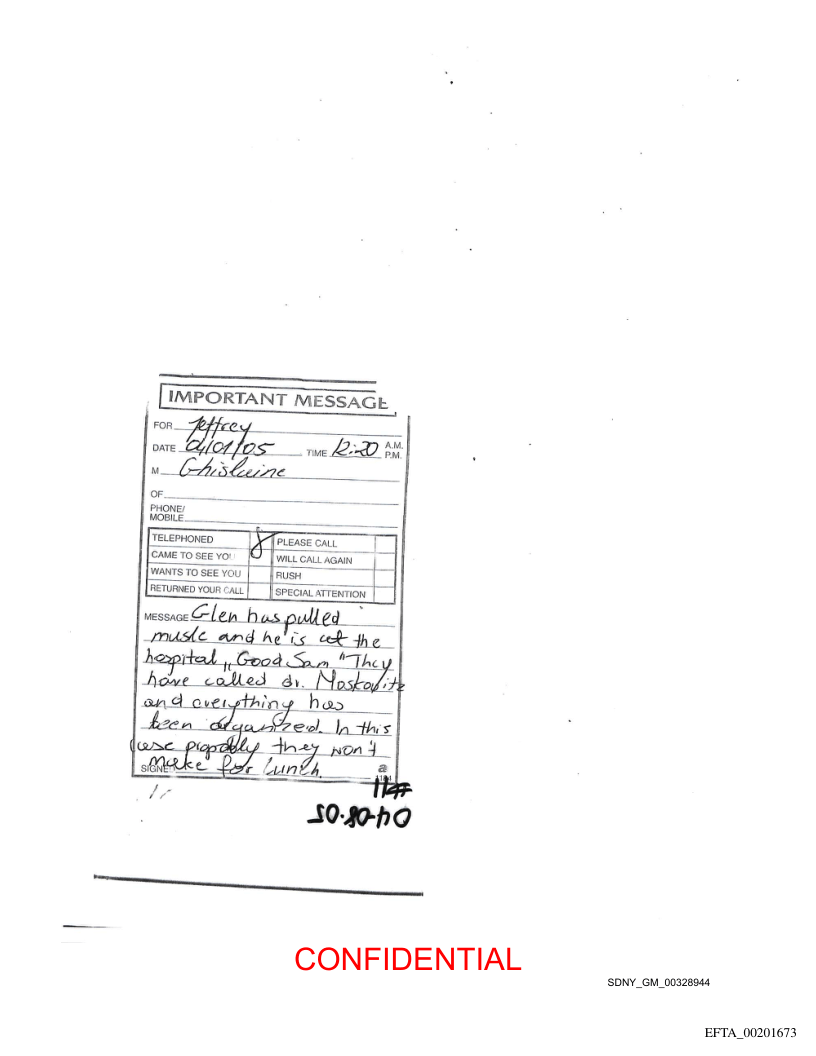 IMPORTANT MESSAGE
FOR Jeffrey
DATE 04/01/05 TIME 12:20 A.M. P.M.
M Ghislaine
OF
PHONE/
MOBILE
TELEPHONED PLEASE CALL
CAME TO SEE YOU WILL CALL AGAIN
WANTS TO SEE YOU RUSH
RETURNED YOUR CALL SPECIAL ATTENTION
MESSAGE Glen has pulled
muslc and he is at the
hospital „Good Sam" They
have called dr. Moskovitz
and everything has
been organized. In this
case propobly they won't
make for lunch.
SIGNE
04-08-05
CONFIDENTIAL
SDNY_GM_00328944
EFTA_00201673